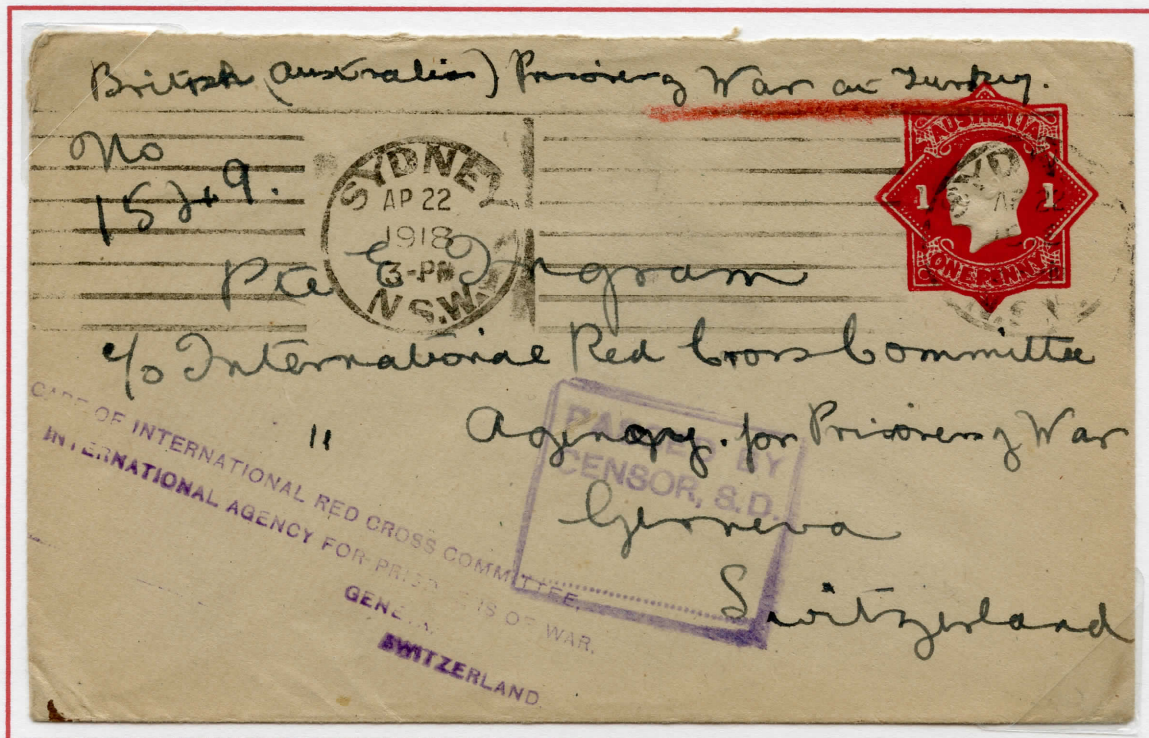 British (Australian) Prisoner of War at Turkey.
No
SYDNEY
AP 22
1918
3-PM
N.S.W.
AUSTRALIA
1 1
ONE PENNY
Pte Ingram
c/o International Red Cross Committee
Agency for Prisoners of War
Geneva
Switzerland
PASSED BY
CENSOR, S.D.
CARE OF INTERNATIONAL RED CROSS COMMITTEE,
INTERNATIONAL AGENCY FOR PRISONERS OF WAR.
GENEVA
SWITZERLAND